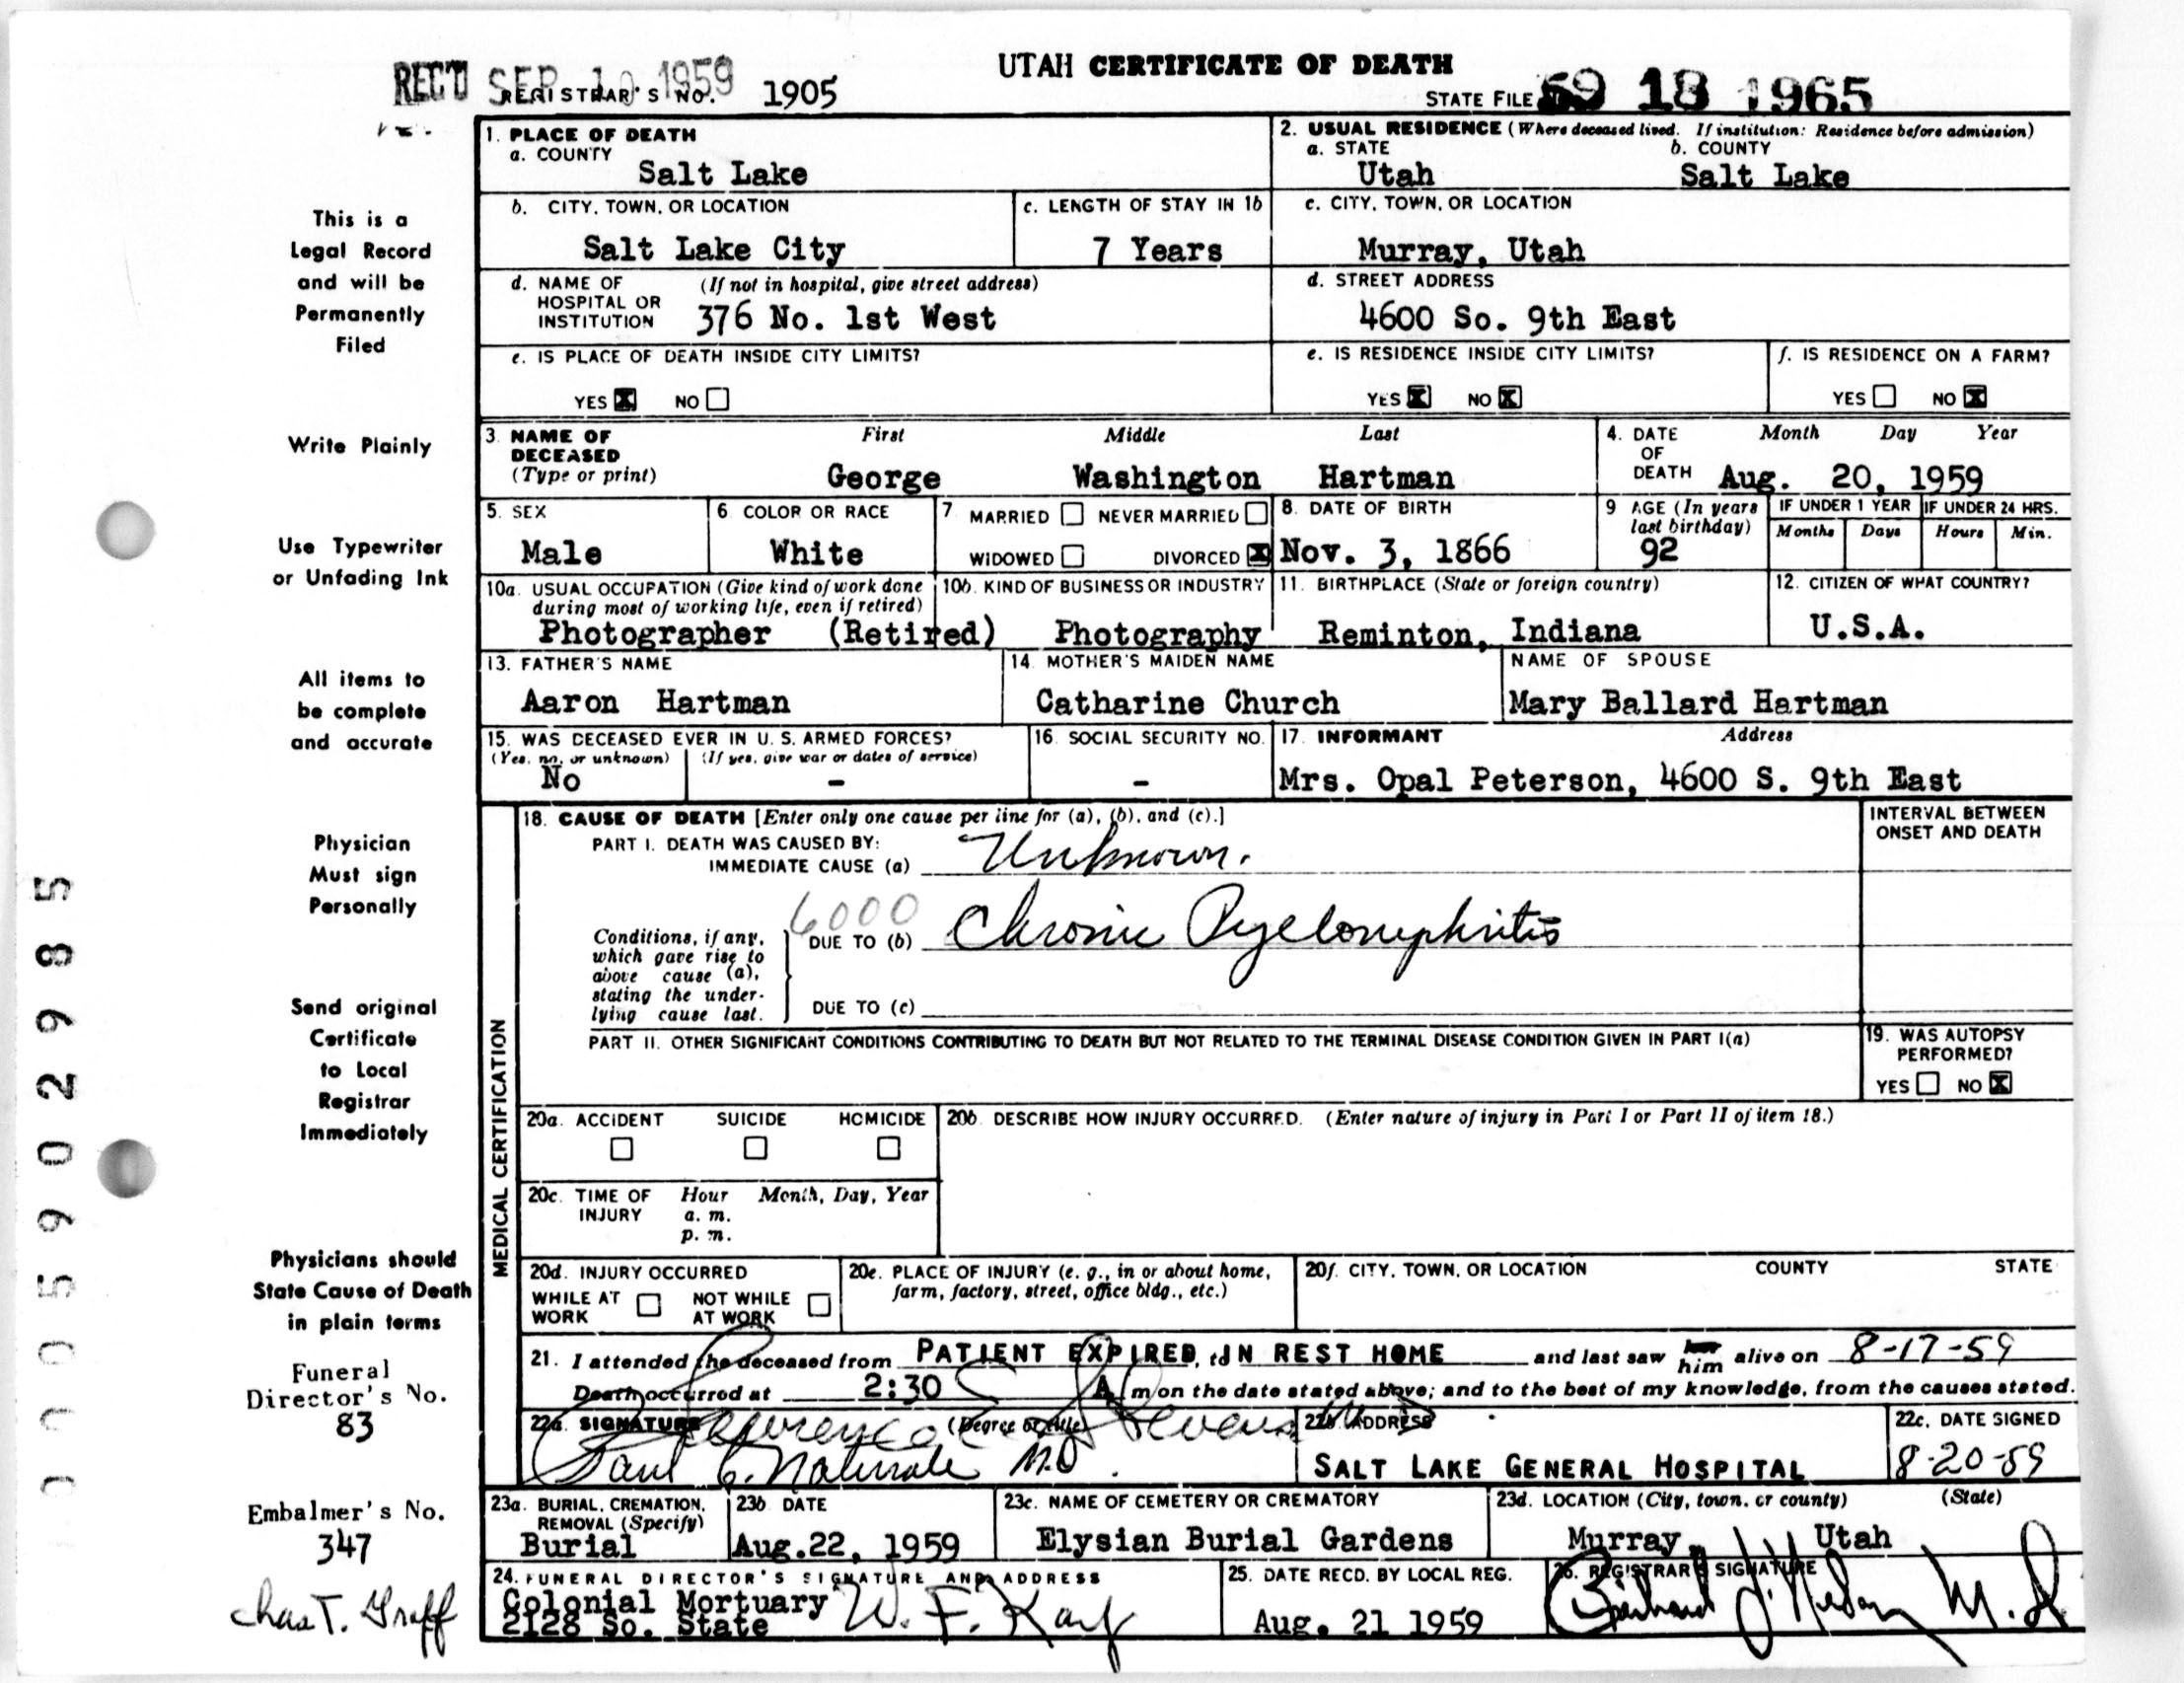 UTAH CERTIFICATE OF DEATH
REC'D SEP 10 1959
REGISTRAR'S NO. 1905
STATE FILE 59 18 1965
1. PLACE OF DEATH
a. COUNTY
Salt Lake
2. USUAL RESIDENCE (Where deceased lived. If institution: Residence before admission)
a. STATE b. COUNTY
Utah Salt Lake
b. CITY, TOWN, OR LOCATION
Salt Lake City
c. LENGTH OF STAY IN 1b
7 Years
c. CITY, TOWN, OR LOCATION
Murray, Utah
d. NAME OF HOSPITAL OR INSTITUTION (If not in hospital, give street address)
376 No. 1st West
d. STREET ADDRESS
4600 So. 9th East
e. IS PLACE OF DEATH INSIDE CITY LIMITS?
YES X NO
e. IS RESIDENCE INSIDE CITY LIMITS?
YES X NO X
f. IS RESIDENCE ON A FARM?
YES NO X
3. NAME OF DECEASED (Type or print)
First Middle Last
George Washington Hartman
4. DATE OF DEATH Month Day Year
Aug. 20, 1959
5. SEX
Male
6. COLOR OR RACE
White
7. MARRIED NEVER MARRIED
WIDOWED DIVORCED X
8. DATE OF BIRTH
Nov. 3, 1866
9. AGE (In years last birthday)
92
IF UNDER 1 YEAR
Months Days
IF UNDER 24 HRS.
Hours Min.
10a. USUAL OCCUPATION (Give kind of work done during most of working life, even if retired)
Photographer (Retired)
10b. KIND OF BUSINESS OR INDUSTRY
Photography
11. BIRTHPLACE (State or foreign country)
Reminton, Indiana
12. CITIZEN OF WHAT COUNTRY?
U.S.A.
13. FATHER'S NAME
Aaron Hartman
14. MOTHER'S MAIDEN NAME
Catharine Church
NAME OF SPOUSE
Mary Ballard Hartman
15. WAS DECEASED EVER IN U. S. ARMED FORCES?
(Yes, no, or unknown) (If yes, give war or dates of service)
No -
16. SOCIAL SECURITY NO.
-
17. INFORMANT Address
Mrs. Opal Peterson, 4600 S. 9th East
MEDICAL CERTIFICATION
18. CAUSE OF DEATH [Enter only one cause per line for (a), (b), and (c).]
INTERVAL BETWEEN ONSET AND DEATH
PART I. DEATH WAS CAUSED BY:
IMMEDIATE CAUSE (a) Unknown.
6000
Conditions, if any, which gave rise to above cause (a), stating the underlying cause last.
DUE TO (b) Chronic Pyelonephritis
DUE TO (c)
PART II. OTHER SIGNIFICANT CONDITIONS CONTRIBUTING TO DEATH BUT NOT RELATED TO THE TERMINAL DISEASE CONDITION GIVEN IN PART I(a)
19. WAS AUTOPSY PERFORMED?
YES NO X
20a. ACCIDENT SUICIDE HOMICIDE
20b. DESCRIBE HOW INJURY OCCURRED. (Enter nature of injury in Part I or Part II of item 18.)
20c. TIME OF INJURY Hour Month, Day, Year
a. m.
p. m.
20d. INJURY OCCURRED
WHILE AT WORK NOT WHILE AT WORK
20e. PLACE OF INJURY (e. g., in or about home, farm, factory, street, office bldg., etc.)
20f. CITY, TOWN, OR LOCATION COUNTY STATE
21. I attended the deceased from PATIENT EXPIRED, IN REST HOME and last saw him alive on 8-17-59
Death occurred at 2:30 A m on the date stated above; and to the best of my knowledge, from the causes stated.
22a. SIGNATURE (Degree or title)
Lawrence Stevens M.D.
Paul C. M.D.
22b. ADDRESS
SALT LAKE GENERAL HOSPITAL
22c. DATE SIGNED
8-20-59
23a. BURIAL, CREMATION, REMOVAL (Specify)
Burial
23b. DATE
Aug.22, 1959
23c. NAME OF CEMETERY OR CREMATORY
Elysian Burial Gardens
23d. LOCATION (City, town, or county) (State)
Murray, Utah
24. FUNERAL DIRECTOR'S SIGNATURE AND ADDRESS
Colonial Mortuary
2128 So. State
W. F. Kay
25. DATE RECD. BY LOCAL REG.
Aug. 21 1959
26. REGISTRAR'S SIGNATURE
M.D.
This is a
Legal Record
and will be
Permanently
Filed
Write Plainly
Use Typewriter
or Unfading Ink
All items to
be complete
and accurate
Physician
Must sign
Personally
Send original
Certificate
to Local
Registrar
Immediately
Physicians should
State Cause of Death
in plain terms
Funeral
Director's No.
83
Embalmer's No.
347
Chas T. Graff
0005902985